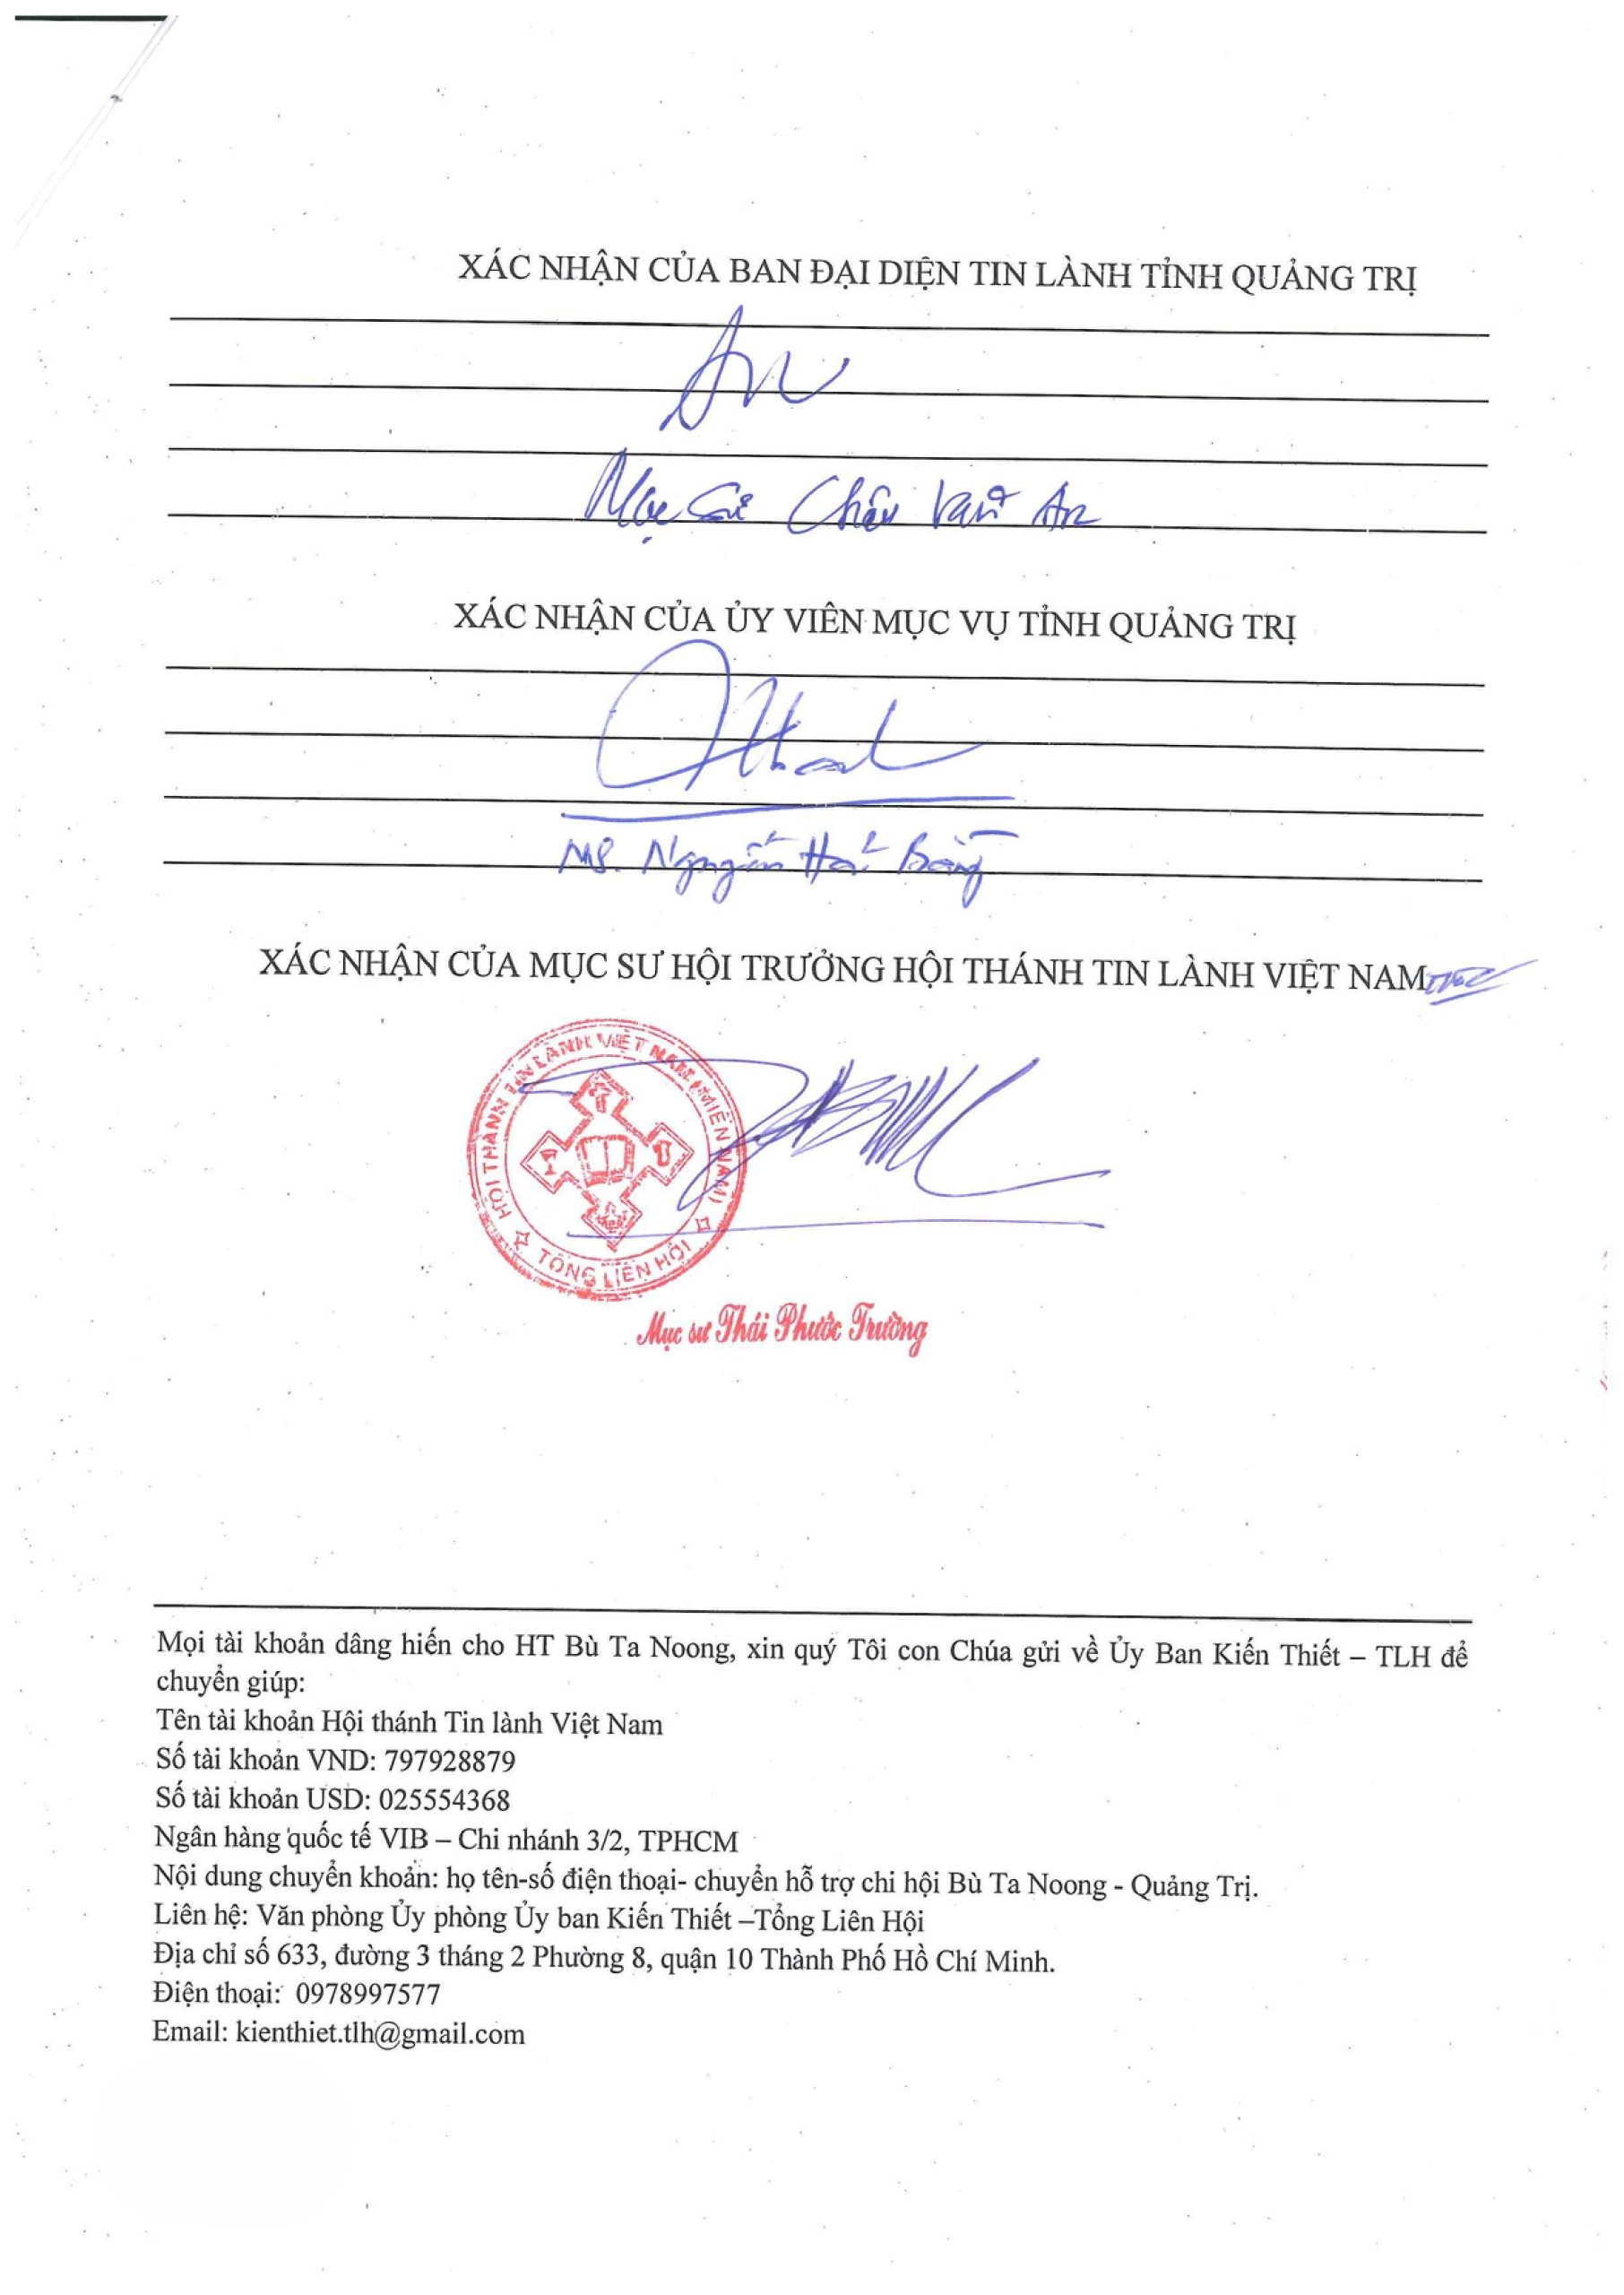 XÁC NHẬN CỦA BAN ĐẠI DIỆN TIN LÀNH TỈNH QUẢNG TRỊ
An
Mục Sư Châu Văn An
XÁC NHẬN CỦA ỦY VIÊN MỤC VỤ TỈNH QUẢNG TRỊ
MS. Nguyễn Hải Bằng
XÁC NHẬN CỦA MỤC SƯ HỘI TRƯỞNG HỘI THÁNH TIN LÀNH VIỆT NAM
HỘI THÁNH TIN LÀNH VIỆT NAM (MIỀN NAM)
TỔNG LIÊN HỘI
Mục sư Thái Phước Trường
Mọi tài khoản dâng hiến cho HT Bù Ta Noong, xin quý Tôi con Chúa gửi về Ủy Ban Kiến Thiết – TLH để
chuyển giúp:
Tên tài khoản Hội thánh Tin lành Việt Nam
Số tài khoản VND: 797928879
Số tài khoản USD: 025554368
Ngân hàng quốc tế VIB – Chi nhánh 3/2, TPHCM
Nội dung chuyển khoản: họ tên-số điện thoại- chuyển hỗ trợ chi hội Bù Ta Noong - Quảng Trị.
Liên hệ: Văn phòng Ủy phòng Ủy ban Kiến Thiết –Tổng Liên Hội
Địa chỉ số 633, đường 3 tháng 2 Phường 8, quận 10 Thành Phố Hồ Chí Minh.
Điện thoại:  0978997577
Email: kienthiet.tlh@gmail.com